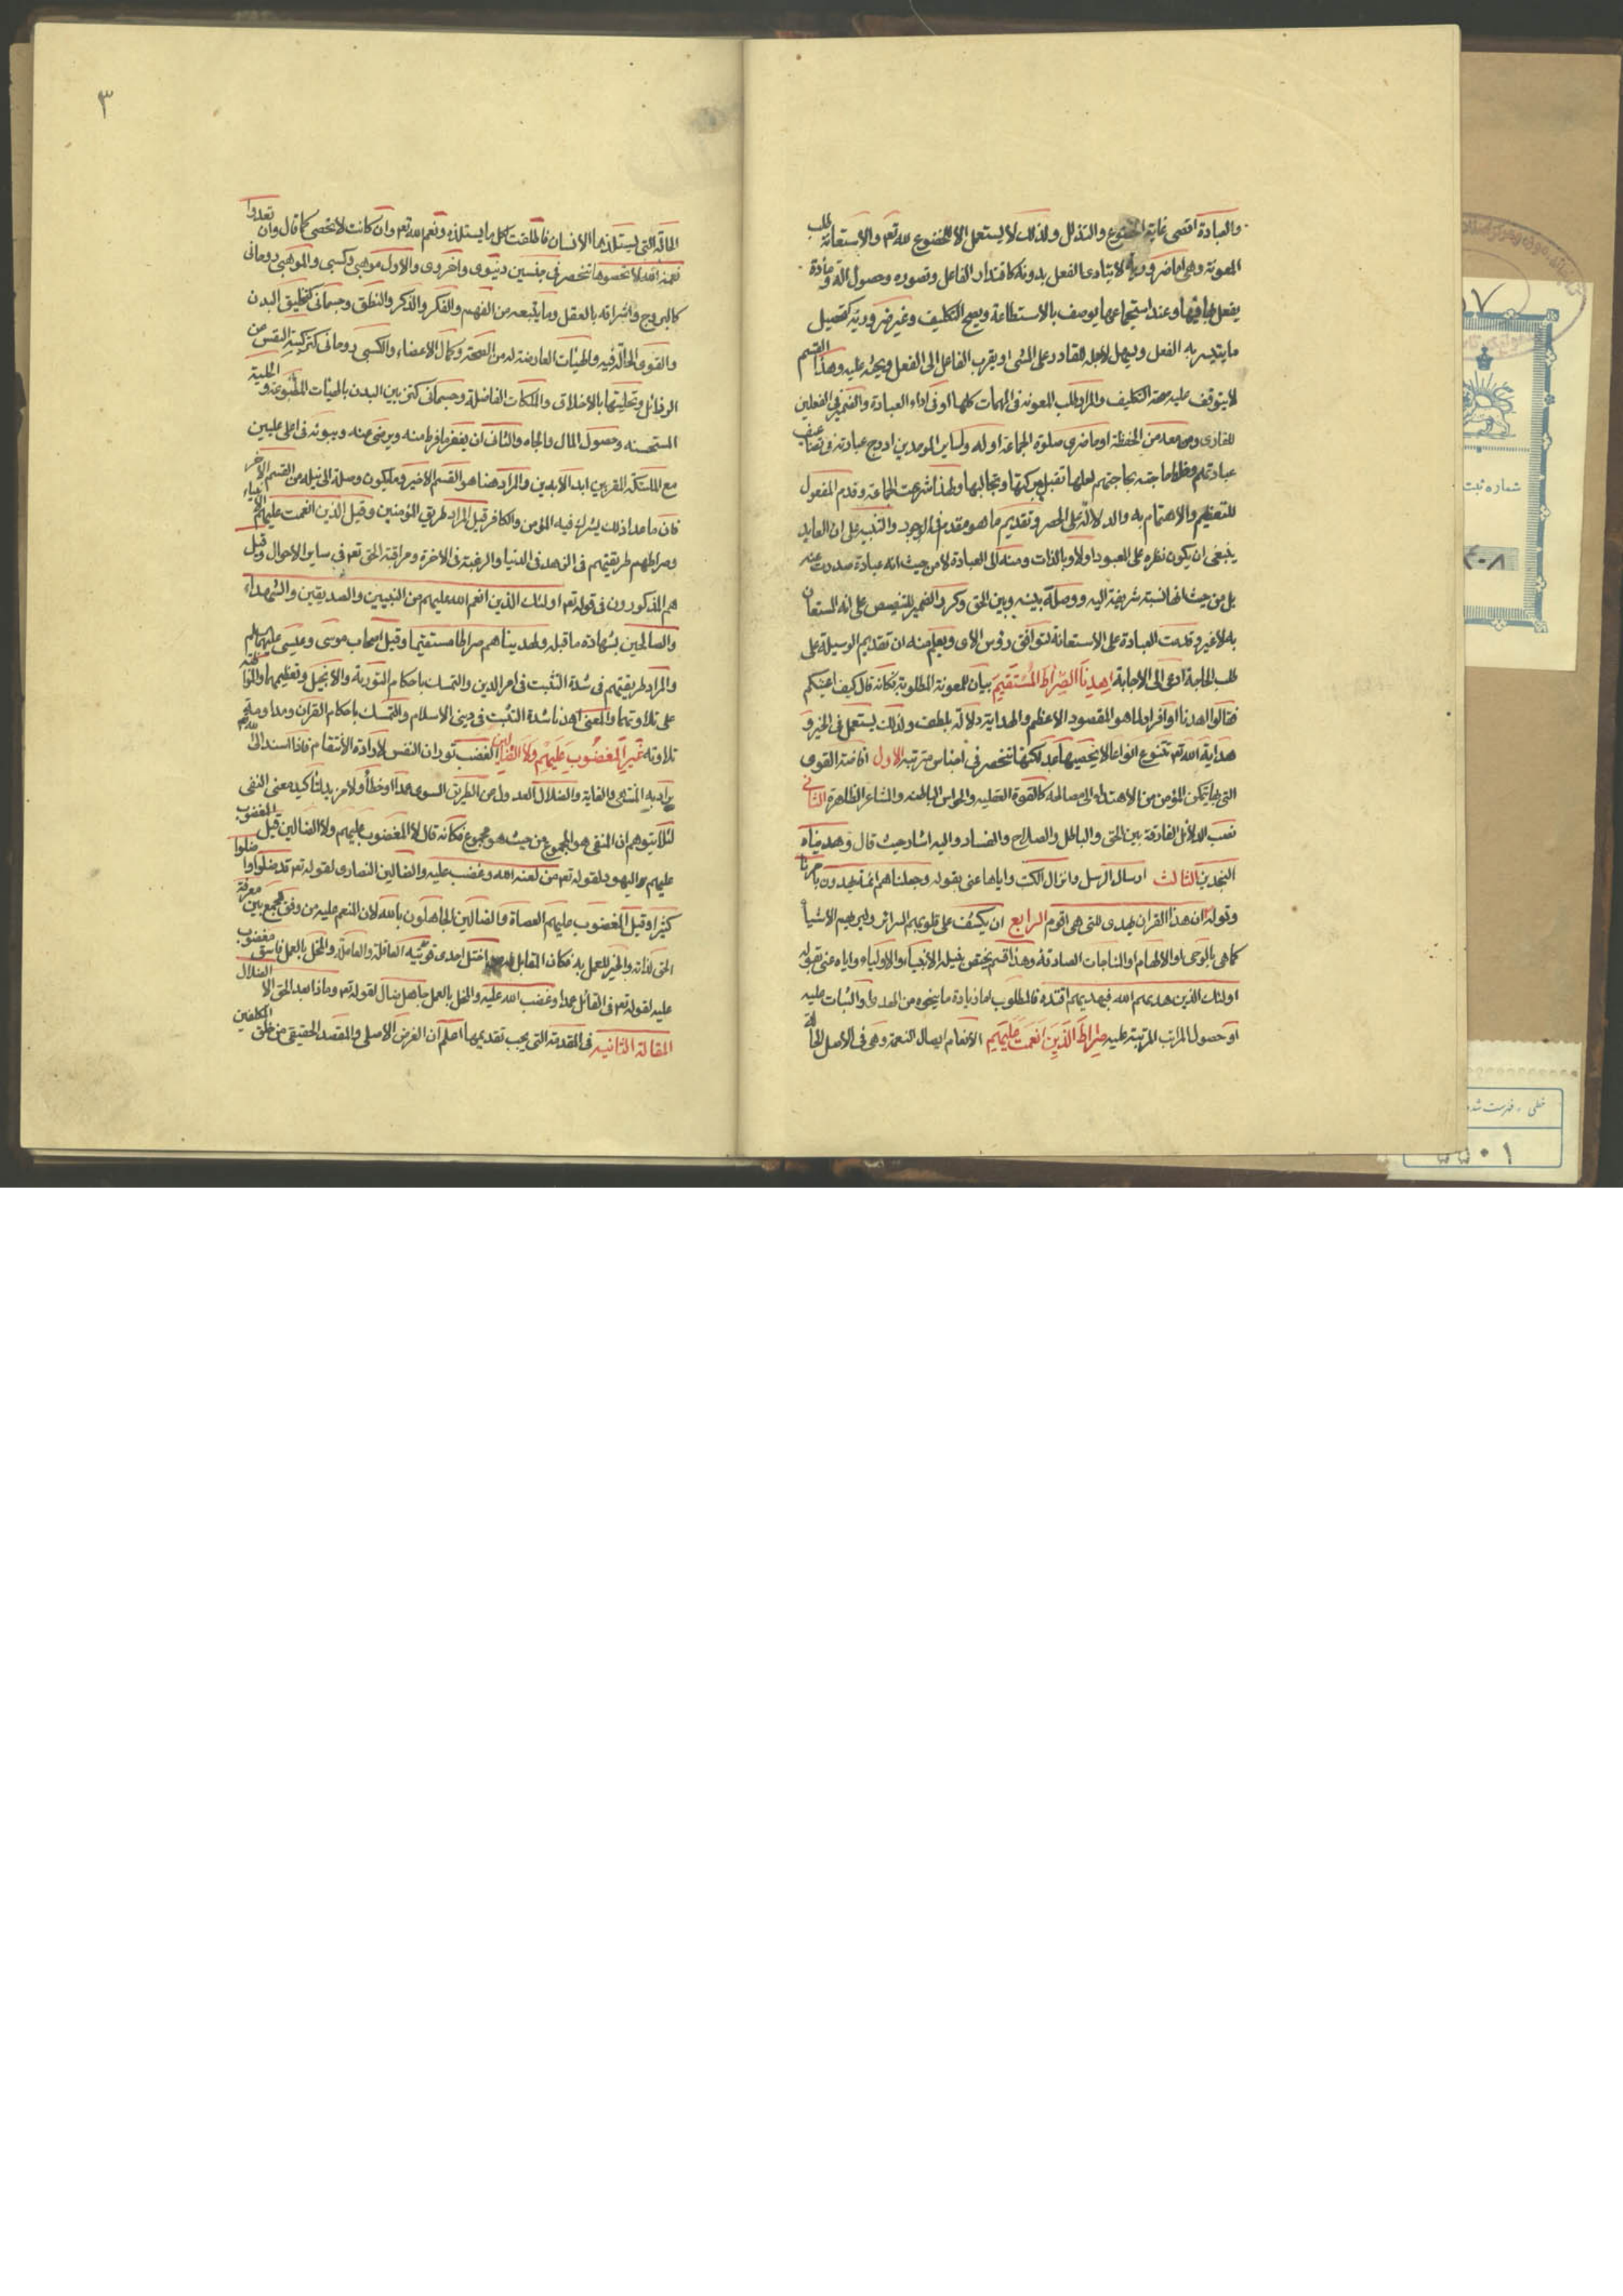 والعبادة اقصى غاية الخضوع والتذلل ولذلك لا يستعمل الا للخضوع لله تعم والاستعانة طلب
المعونة وهى اما ضرورية لا يتادى الفعل بدونه كاقتدار الفاعل وتصوره وحصول الة ومادة
يفعل بها فيها وعند استجماعها يوصف بالاستطاعة ويصح التكليف وغير ضرورية كتحصيل
ما يتيسر به الفعل ويسهل لاجله للقادر على المشى او يقرب الفاعل الى الفعل ويحثه عليه وهذا القسم
لا يتوقف عليه صحة التكليف والمراد طلب المعونه فى المهمات كلها او فى اداء العبادة والضمير فى الفعلين
للقارى ومن معه من الحفظة او حاضرى صلوة الجماعة او له ولساير الموحدين ادرج عبادته فى تضاعيف
عبادتهم وخلط حاجته بحاجتهم لعلها تقبل ببركتها وتجاب اليها ولهذا شرعت الجماعة وقدم المفعول
للتعظيم والاهتمام به والدلالة على الحصر وتقديم ما هو مقدم فى الوجود والتنبيه على ان العابد
ينبغى ان يكون نظره على المعبود اولا وبالذات ومنه الى العبادة لا من حيث انه عبادة صدرت عنه
بل من حيث انها نسبة شريفة اليه ووصلة بينه وبين الحق وكرر الضمير للتنصيص على انه المستعان
به لا غير وقدمت العبادة على الاستعانة لتوافق رؤس الاى ويعلم منه ان تقديم الوسيلة على
طلب الحاجة ادعى الى الاجابة اهدنا الصراط المستقيم بيان للمعونة المطلوبة فكانه قال كيف اعينكم
فقالوا اهدنا او افراد لما هو المقصود الاعظم والهداية دلالة بلطف ولذلك يستعمل فى الخير و
هداية الله تعم تتنوع انواعا لا يحصيها عد لكنها تنحصر فى اجناس مترتبة الاول افاضة القوى
التى بها يتمكن المؤمن من الاهتداء الى مصالحه كالقوة العقليه والحواس الباطنه والمشاعر الظاهرة الثانى
نصب الدلائل الفارقة بين الحق والباطل والصلاح والفساد واليه اشار حيث قال وهديناه
النجدين الثالث ارسال الرسل وانزال الكتب واياها عنى بقوله وجعلناهم ائمة يهدون بامرنا
وقوله ان هذا القران يهدى للتى هى اقوم الرابع ان يكشف على قلوبهم السرائر ويريهم الاشياء
كماهى بالوحى او الالهام او المنامات الصادقة وهذا قسم يختص بنيله الانبياء والاولياء واياه عنى بقوله
اولئك الذين هديهم الله فبهديهم اقتده فالمطلوب اما زيادة ما منحوه من الهدى او الثبات عليه
او حصول المراتب المرتبة عليه صراط الذين انعمت عليهم الانعام ايصال النعمة وهى فى الاصل الحالة
٣
الحالة التى يستلذها الانسان فاطلقت لكل ما يستلذه ونعم الله تعم وان كانت لا تحصى كما قال وان تعدوا
نعمة الله لا تحصوها تنحصر فى جنسين دنيوى واخروى والاول موهبى وكسبى والموهبى روحانى
كالبروح واشراقه بالعقل وما يتبعه من الفهم والفكر والذكر والنطق وجسمانى كتخليق البدن
والقوى الحالة فيه والهيئات العارضة له من الصحة وكمال الاعضاء والكسبى روحانى كتزكية النفس عن
الرذائل وتحليتها بالاخلاق والملكات الفاضلة وجسمانى كتزيين البدن بالهيئات المطبوعة والحلية
المستحسنه وحصول المال والجاه والثانى ان يغفر ما فرط منه ويرضى عنه ويبوئه فى اعلى عليين
مع الملئكة المقربين ابد الابدين والمراد هنا هو القسم الاخير وما يكون وصلة الى نيله من القسم الاخر
فان ما عدا ذلك يشرك فيه المؤمن والكافر قيل المراد طريق المؤمنين وقيل الذين انعمت عليهم الانبياء
وصراطهم طريقتهم فى الزهد فى الدنيا والرغبة فى الاخرة ومراقبة الحق تعم فى ساير الاحوال وقيل
هم المذكورون فى قوله تعم اولئك الذين انعم الله عليهم من النبيين والصديقين والشهداء
والصالحين بشهادة ما قبله ولهديناهم صراطا مستقيما وقيل اصحاب موسى وعيسى عليهما سلم
والمراد طريقتهم فى شدة التثبت فى امر الدين والتمسك باحكام التورية والانجيل وتعظيمهما والمواظبة
على تلاوتهما والمعنى اهدنا شدة التثبت فى دينى الاسلام والتمسك باحكام القران ومداومة
تلاوته غير المغضوب عليهم ولا الضالين الغضب ثوران النفس لارادة الانتقام فاذا اسند الى الله تعم
يراد به المنتهى والغاية والضلال العدول عن الطريق السوى عمدا او خطأ ولا مزيد لتاكيد معنى النفى
لئلا يتوهم ان المنفى هو المجموع من حيث هو مجموع فكانه قال لا المغضوب عليهم ولا الضالين قيل المغضوب
عليهم اليهود لقوله تعم من لعنه الله وغضب عليه والضالين النصارى لقوله تعم قد ضلوا واضلوا
كثيرا وقيل المغضوب عليهم العصاة والضالين الجاهلون بالله لان المنعم عليه من وفق للجمع بين معرفة
الحق لذاته والخير للعمل به فكان المقابل له من اختل احدى قوتيه العاقلة والعاملة والمخل بالعمل فاسق مغضوب
عليه لقوله تعم فى القاتل عمدا وغضب الله عليه والمخل بالعمل جاهل ضال لقوله تعم وماذا بعد الحق الا الضلال
المقالة الثانيه فى المقدمة التى يجب تقديمها اعلم ان الغرض الاصلى والمقصد الحقيقى من خلق المكلفين
شماره ثبت
خطى . فهرست شده